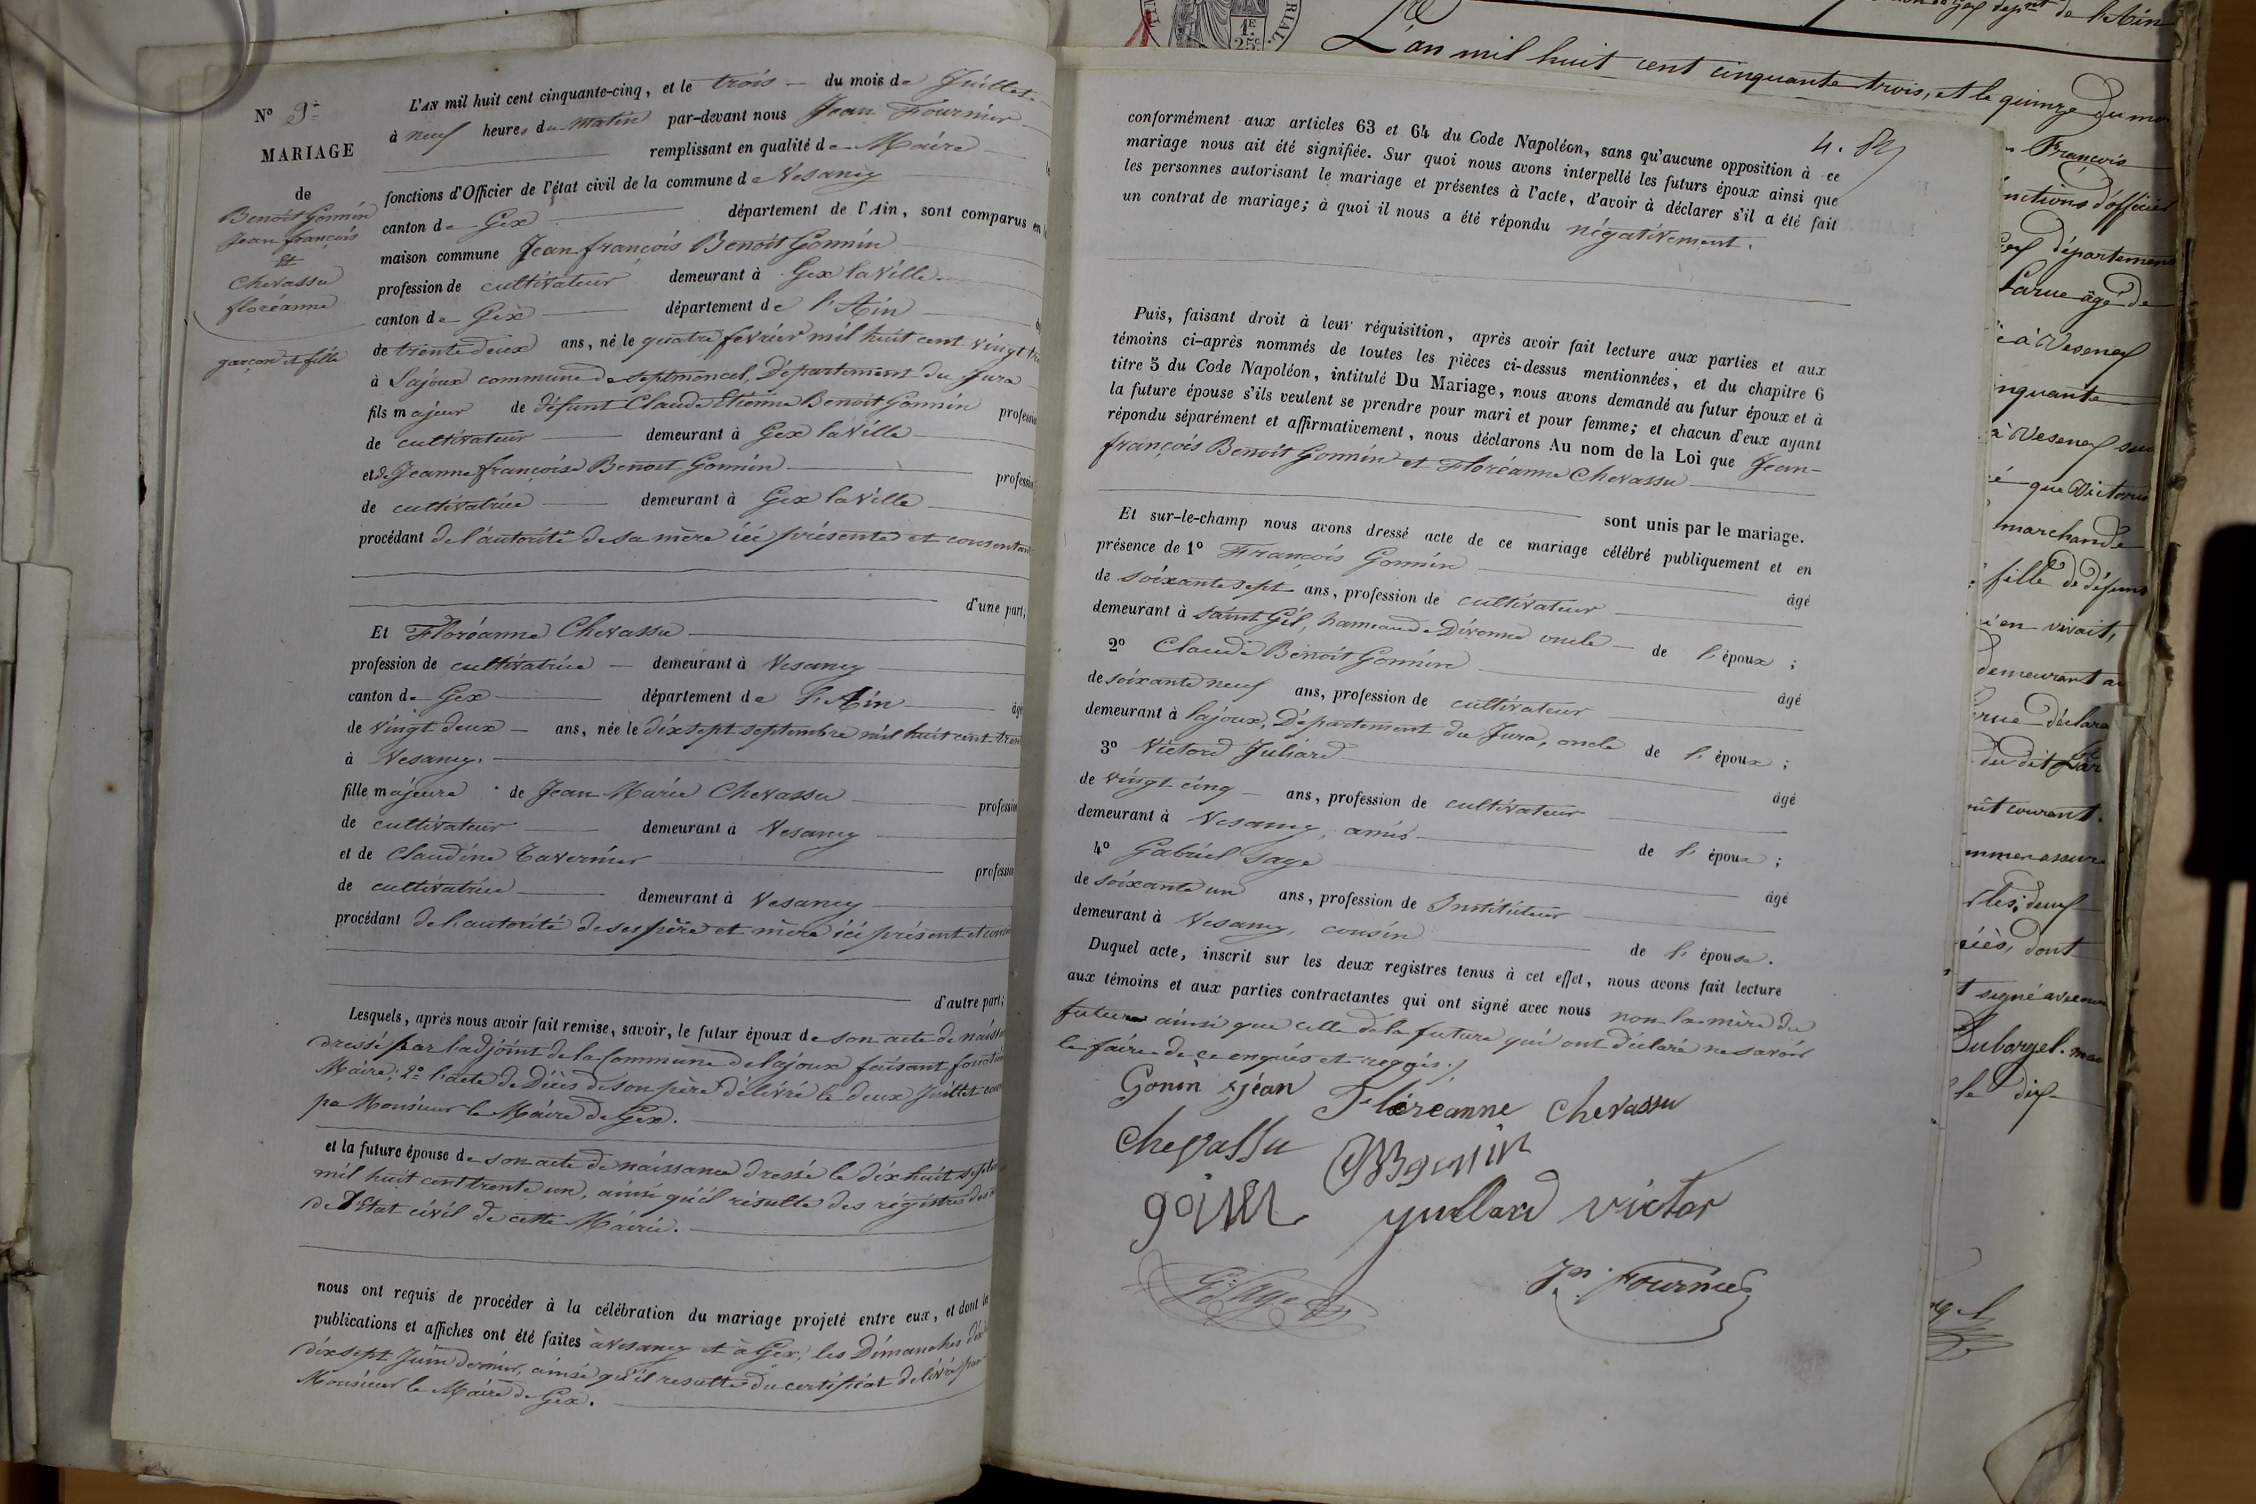 No 3e
MARIAGE
de
Benoît Gonnin
Jean françois
Et
Chevassu
floréanne
garçon et fille
L'AN mil huit cent cinquante-cinq, et le trois du mois de Juillet
à neuf heures du matin par-devant nous Jean Fournier
remplissant en qualité de Maire
fonctions d'Officier de l'état civil de la commune de Vésancy
canton de Gex département de l'Ain, sont comparus en
maison commune Jean françois Benoît Gonnin
profession de cultivateur demeurant à Gex la Ville
canton de Gex département de l'Ain
de trente deux ans, né le quatre février mil huit cent vingt
à Lajoux commune de septmoncel, Département du Jura
fils majeur de défunt Claude Etienne Benoit Gonnin profession
de cultivateur demeurant à Gex la Ville
et de Jeanne françoise Benoit Gonnin profession
de cultivatrice demeurant à Gex la Ville
procédant de l'autorité de sa mère ici présente et consentant
d'une part;
Et Floréanne Chevassu
profession de cultivatrice demeurant à Vesancy
canton de Gex département de l'Ain âgé
de vingt deux ans, née le dix sept septembre mil huit cent
à Vesancy.
fille majeure de Jean Marie Chevassu profession
de cultivateur demeurant à Vesancy
et de Claudine Tavernier profession
de cultivatrice demeurant à Vesancy
procédant de l'autorité de ses père et mère ici présent et
d'autre part;
Lesquels, après nous avoir fait remise, savoir, le futur époux de son acte de
dressé par l'adjoint de la Commune de lajoux faisant
Maire; 2o l'acte de Décès de son père délivré le deux Juillet
pa Monsieur le Maire de Gex.
et la future épouse de son acte de naissance dressé le dix huit
mil huit cent trente un, ainsi qu'il résulte des régistres
de l'Etat civil de cette Mairie.
nous ont requis de procéder à la célébration du mariage projeté entre eux, et dont
publications et affiches ont été faites à Vesancy et à Gex, les Dimanches
dix sept Juin dernier, ainsi qu'il resulte du certificat délivré par
Monsieur le Maire de Gex.
conformément aux articles 63 et 64 du Code Napoléon, sans qu'aucune opposition à ce
mariage nous ait été signifiée. Sur quoi nous avons interpellé les futurs époux ainsi que
les personnes autorisant le mariage et présentes à l'acte, d'avoir à déclarer s'il a été fait
un contrat de mariage; à quoi il nous a été répondu négativement.
Puis, faisant droit à leur réquisition, après avoir fait lecture aux parties et aux
témoins ci-après nommés de toutes les pièces ci-dessus mentionnées, et du chapitre 6
titre 5 du Code Napoléon, intitulé Du Mariage, nous avons demandé au futur époux et à
la future épouse s'ils veulent se prendre pour mari et pour femme; et chacun d'eux ayant
répondu séparément et affirmativement, nous déclarons Au nom de la Loi que Jean-
françois Benoît Gonnin et Floréanne Chevassu
sont unis par le mariage.
Et sur-le-champ nous avons dressé acte de ce mariage célébré publiquement et en
présence de 1o François Gonnin
âgé
de soixante sept ans, profession de cultivateur
demeurant à saint Gil, hameau de Divonne oncle de l'époux;
2o Claude Benoît Gonnin
âgé
de soixante neuf ans, profession de cultivateur
demeurant à lajoux, Département du Jura, oncle de l'époux;
3o Victord Juliard
âgé
de vingt cinq ans, profession de cultivateur
demeurant à Vesancy, amis de l'époux;
4o Gabriel Sage
âgé
de soixante un ans, profession de Instituteur
demeurant à Vesancy, cousin de l'épouse.
Duquel acte, inscrit sur les deux registres tenus à cet effet, nous avons fait lecture
aux témoins et aux parties contractantes qui ont signé avec nous non la mère du
futur ainsi que celle de la future qui ont déclaré ne savoir
le faire de ce enquis et reqgis./
Gonin jéan
Floreanne Chevassu
Chevassu
juillard victor
Jn. Fournier
L'an mil huit cent cinquante trois, et le quinze du
François
département
Larue âgé de
à Vesancy
marchande
fille de défunt
en vivait,
demeurant
du dit
courant.
dont
le dix